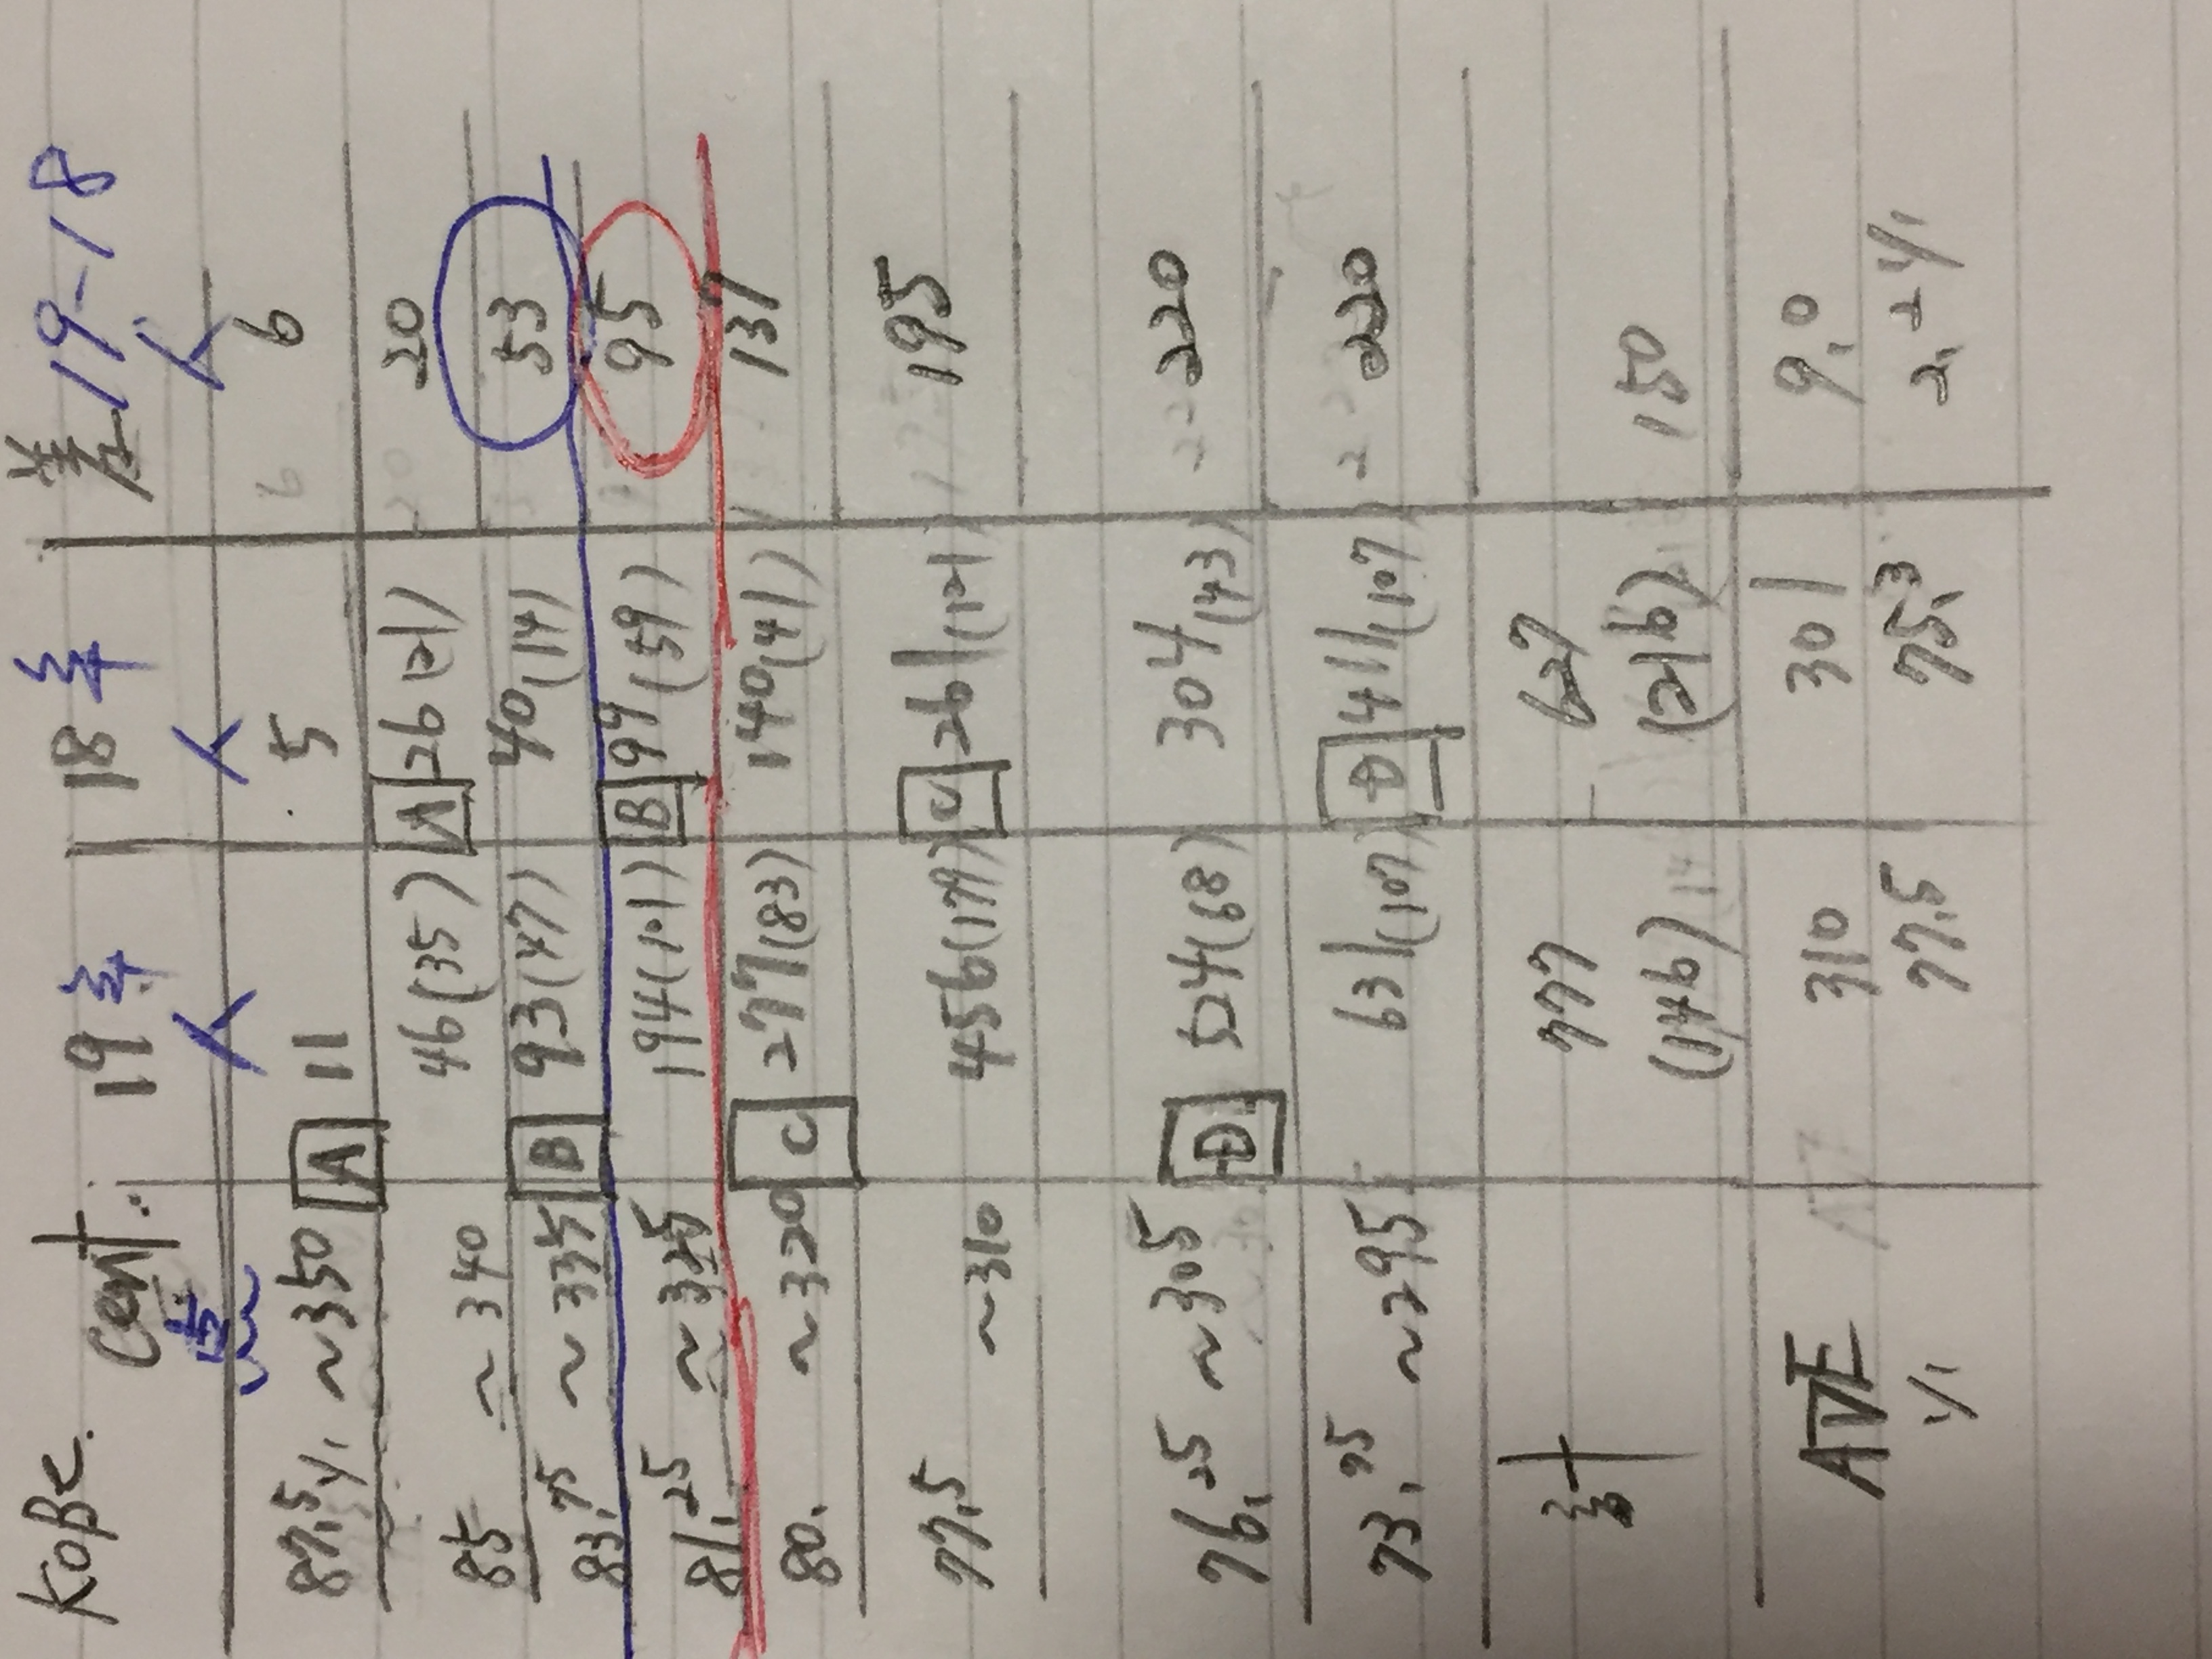 Kobe. Cent. 19年 18年 差19-18
点 人 人 人
87.5% ~350 A 11 5 6
85 ~340 46(35) A 26(21) 20
83.75 ~335 B 93(47) 40(14) 53
81.25 ~325 194(101) B 99(59) 95
80. ~320 C 277(83) 140(41) 137
77.5 ~310 456(179) C 261(121) 195
76.25 ~305 D 524(68) 304(43) 220
73.75 ~295 631(107) D 411(107) 220
計 777 627
(146) (216) 150
AVE 310 301 9.0
% 77.5 75.3 2.2%